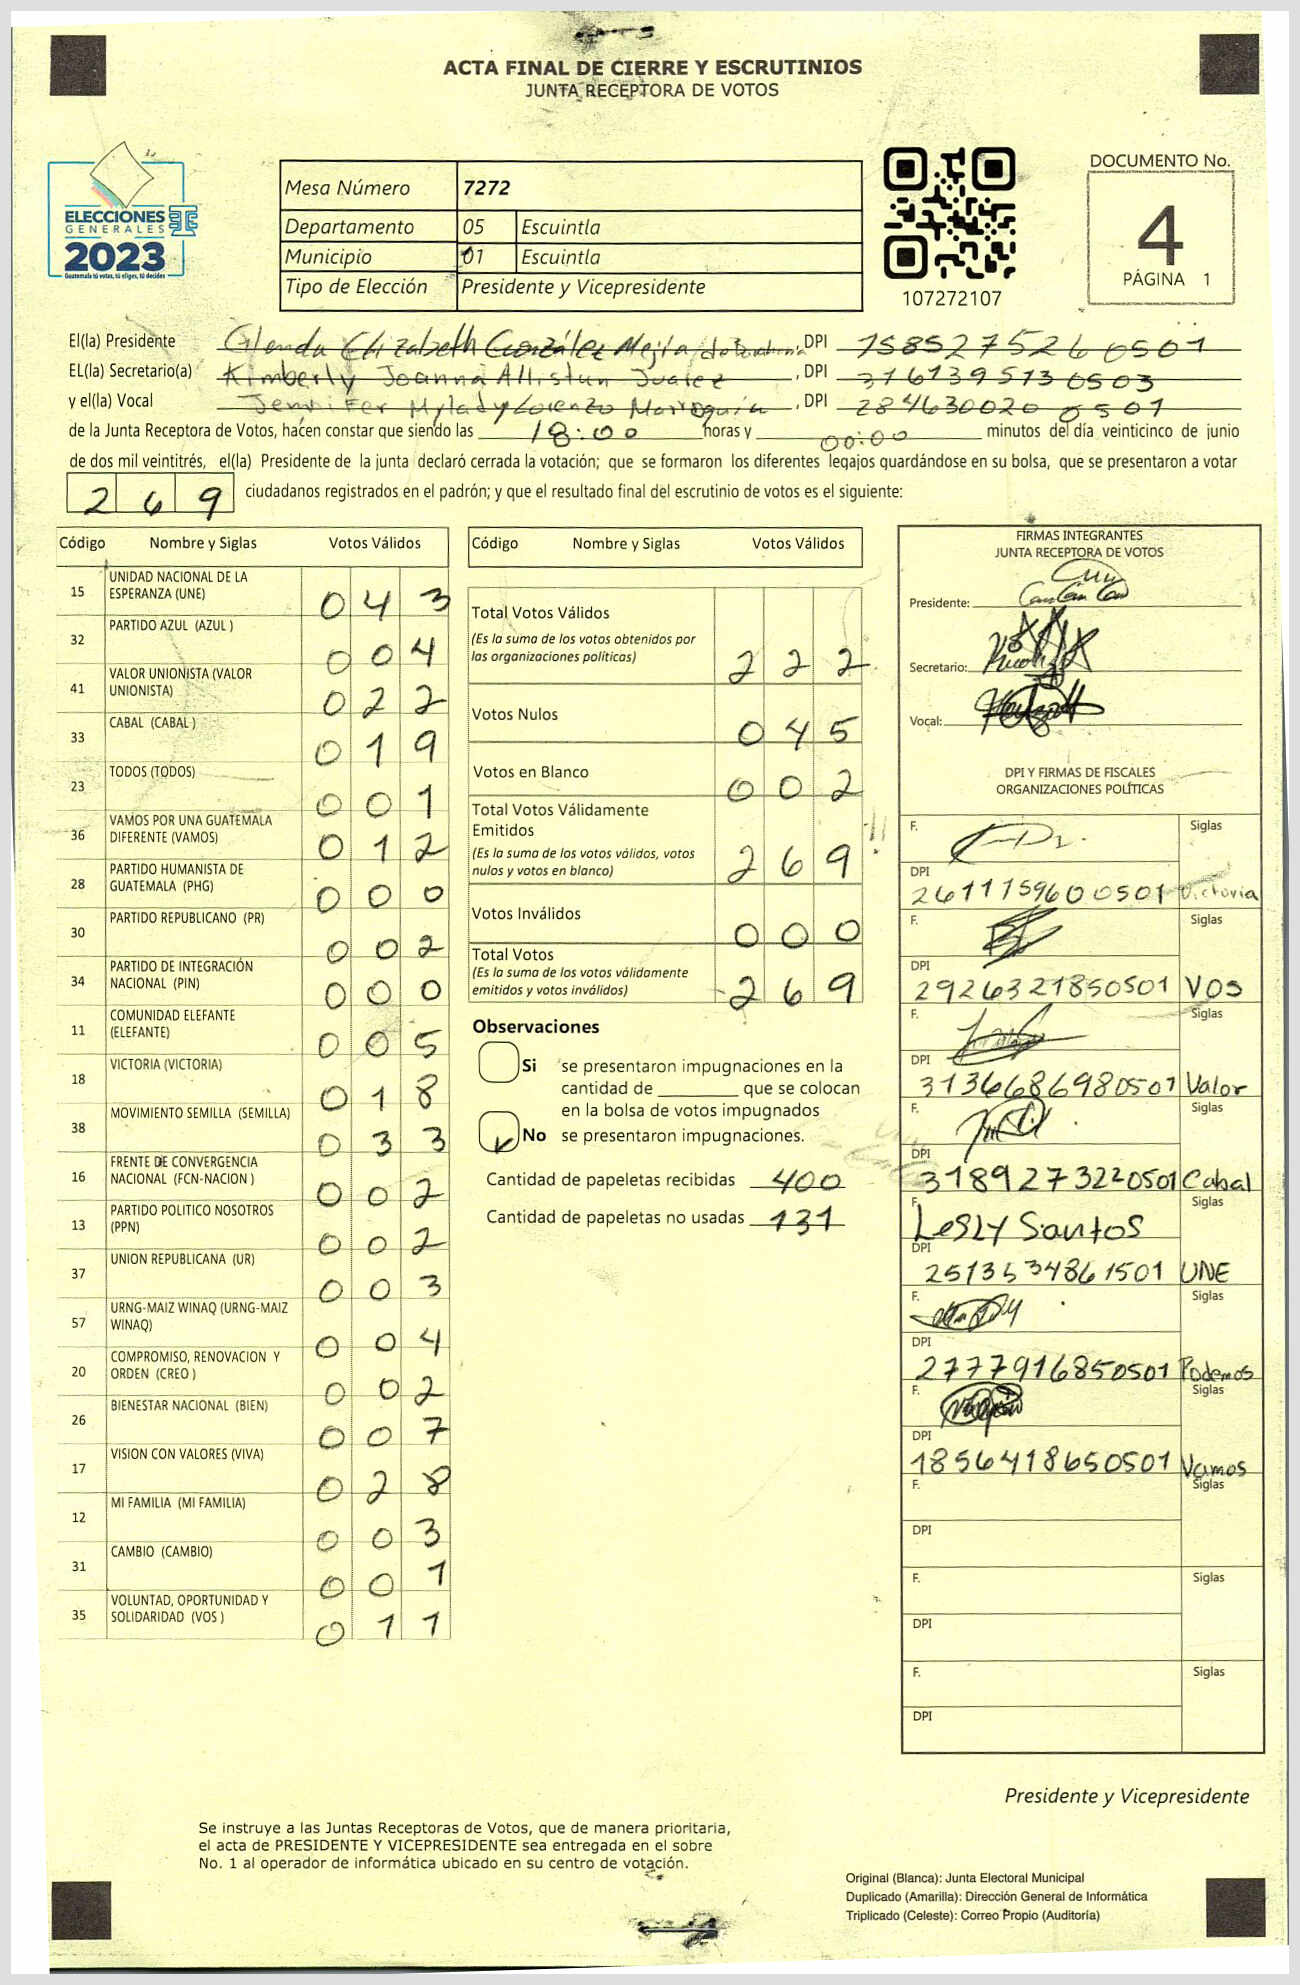 ACTA FINAL DE CIERRE Y ESCRUTINIOS
JUNTA RECEPTORA DE VOTOS
ELECCIONES
GENERALES
2023
Guatemala tú votas, tú eliges, tú decides
Mesa Número 7272
Departamento 05 Escuintla
Municipio 01 Escuintla
Tipo de Elección Presidente y Vicepresidente
107272107
DOCUMENTO No.
4
PÁGINA 1
El(la) Presidente Glenda Elizabeth González Mejía, DPI 1585275260501
EL(la) Secretario(a) Kimberly Joanna Juarez, DPI 3161395130503
y el(la) Vocal Jennifer Mylady Lorenzo Marroquín, DPI 2846300200501
de la Junta Receptora de Votos, hacen constar que siendo las 18:00 horas y 00:00 minutos del día veinticinco de junio
de dos mil veintitrés, el(la) Presidente de la junta declaró cerrada la votación; que se formaron los diferentes legajos quardándose en su bolsa, que se presentaron a votar
269 ciudadanos registrados en el padrón; y que el resultado final del escrutinio de votos es el siguiente:
Código Nombre y Siglas Votos Válidos
15 UNIDAD NACIONAL DE LA ESPERANZA (UNE) 043
32 PARTIDO AZUL (AZUL ) 004
41 VALOR UNIONISTA (VALOR UNIONISTA) 022
33 CABAL (CABAL ) 019
23 TODOS (TODOS) 001
36 VAMOS POR UNA GUATEMALA DIFERENTE (VAMOS) 012
28 PARTIDO HUMANISTA DE GUATEMALA (PHG) 000
30 PARTIDO REPUBLICANO (PR) 002
34 PARTIDO DE INTEGRACIÓN NACIONAL (PIN) 000
11 COMUNIDAD ELEFANTE (ELEFANTE) 005
18 VICTORIA (VICTORIA) 018
38 MOVIMIENTO SEMILLA (SEMILLA) 033
16 FRENTE DE CONVERGENCIA NACIONAL (FCN-NACION ) 002
13 PARTIDO POLITICO NOSOTROS (PPN) 002
37 UNION REPUBLICANA (UR) 003
57 URNG-MAIZ WINAQ (URNG-MAIZ WINAQ) 004
20 COMPROMISO, RENOVACION Y ORDEN (CREO ) 002
26 BIENESTAR NACIONAL (BIEN) 007
17 VISION CON VALORES (VIVA) 028
12 MI FAMILIA (MI FAMILIA) 003
31 CAMBIO (CAMBIO) 001
35 VOLUNTAD, OPORTUNIDAD Y SOLIDARIDAD (VOS ) 011
Código Nombre y Siglas Votos Válidos
Total Votos Válidos
(Es la suma de los votos obtenidos por
las organizaciones políticas) 222
Votos Nulos 045
Votos en Blanco 002
Total Votos Válidamente
Emitidos
(Es la suma de los votos válidos, votos
nulos y votos en blanco) 269
Votos Inválidos 000
Total Votos
(Es la suma de los votos válidamente
emitidos y votos inválidos) 269
Observaciones
Si se presentaron impugnaciones en la
cantidad de ________ que se colocan
en la bolsa de votos impugnados
No se presentaron impugnaciones.
Cantidad de papeletas recibidas 400
Cantidad de papeletas no usadas 131
FIRMAS INTEGRANTES
JUNTA RECEPTORA DE VOTOS
Presidente:
Secretario:
Vocal:
DPI Y FIRMAS DE FISCALES
ORGANIZACIONES POLÍTICAS
F. Siglas
DPI 2611159600501 Victoria
F. Siglas
DPI 2926321850501 VOS
F. Siglas
DPI 3136686980501 Valor
F. Siglas
DPI 3189273220501 Cabal
F. Lesly Santos Siglas
DPI 2513534861501 UNE
F. Siglas
DPI 2777916850501 Podemos
F. Siglas
DPI 1856418650501 Vamos
F. Siglas
DPI
F. Siglas
DPI
F. Siglas
DPI
Presidente y Vicepresidente
Se instruye a las Juntas Receptoras de Votos, que de manera prioritaria,
el acta de PRESIDENTE Y VICEPRESIDENTE sea entregada en el sobre
No. 1 al operador de informática ubicado en su centro de votación.
Original (Blanca): Junta Electoral Municipal
Duplicado (Amarilla): Dirección General de Informática
Triplicado (Celeste): Correo Propio (Auditoría)